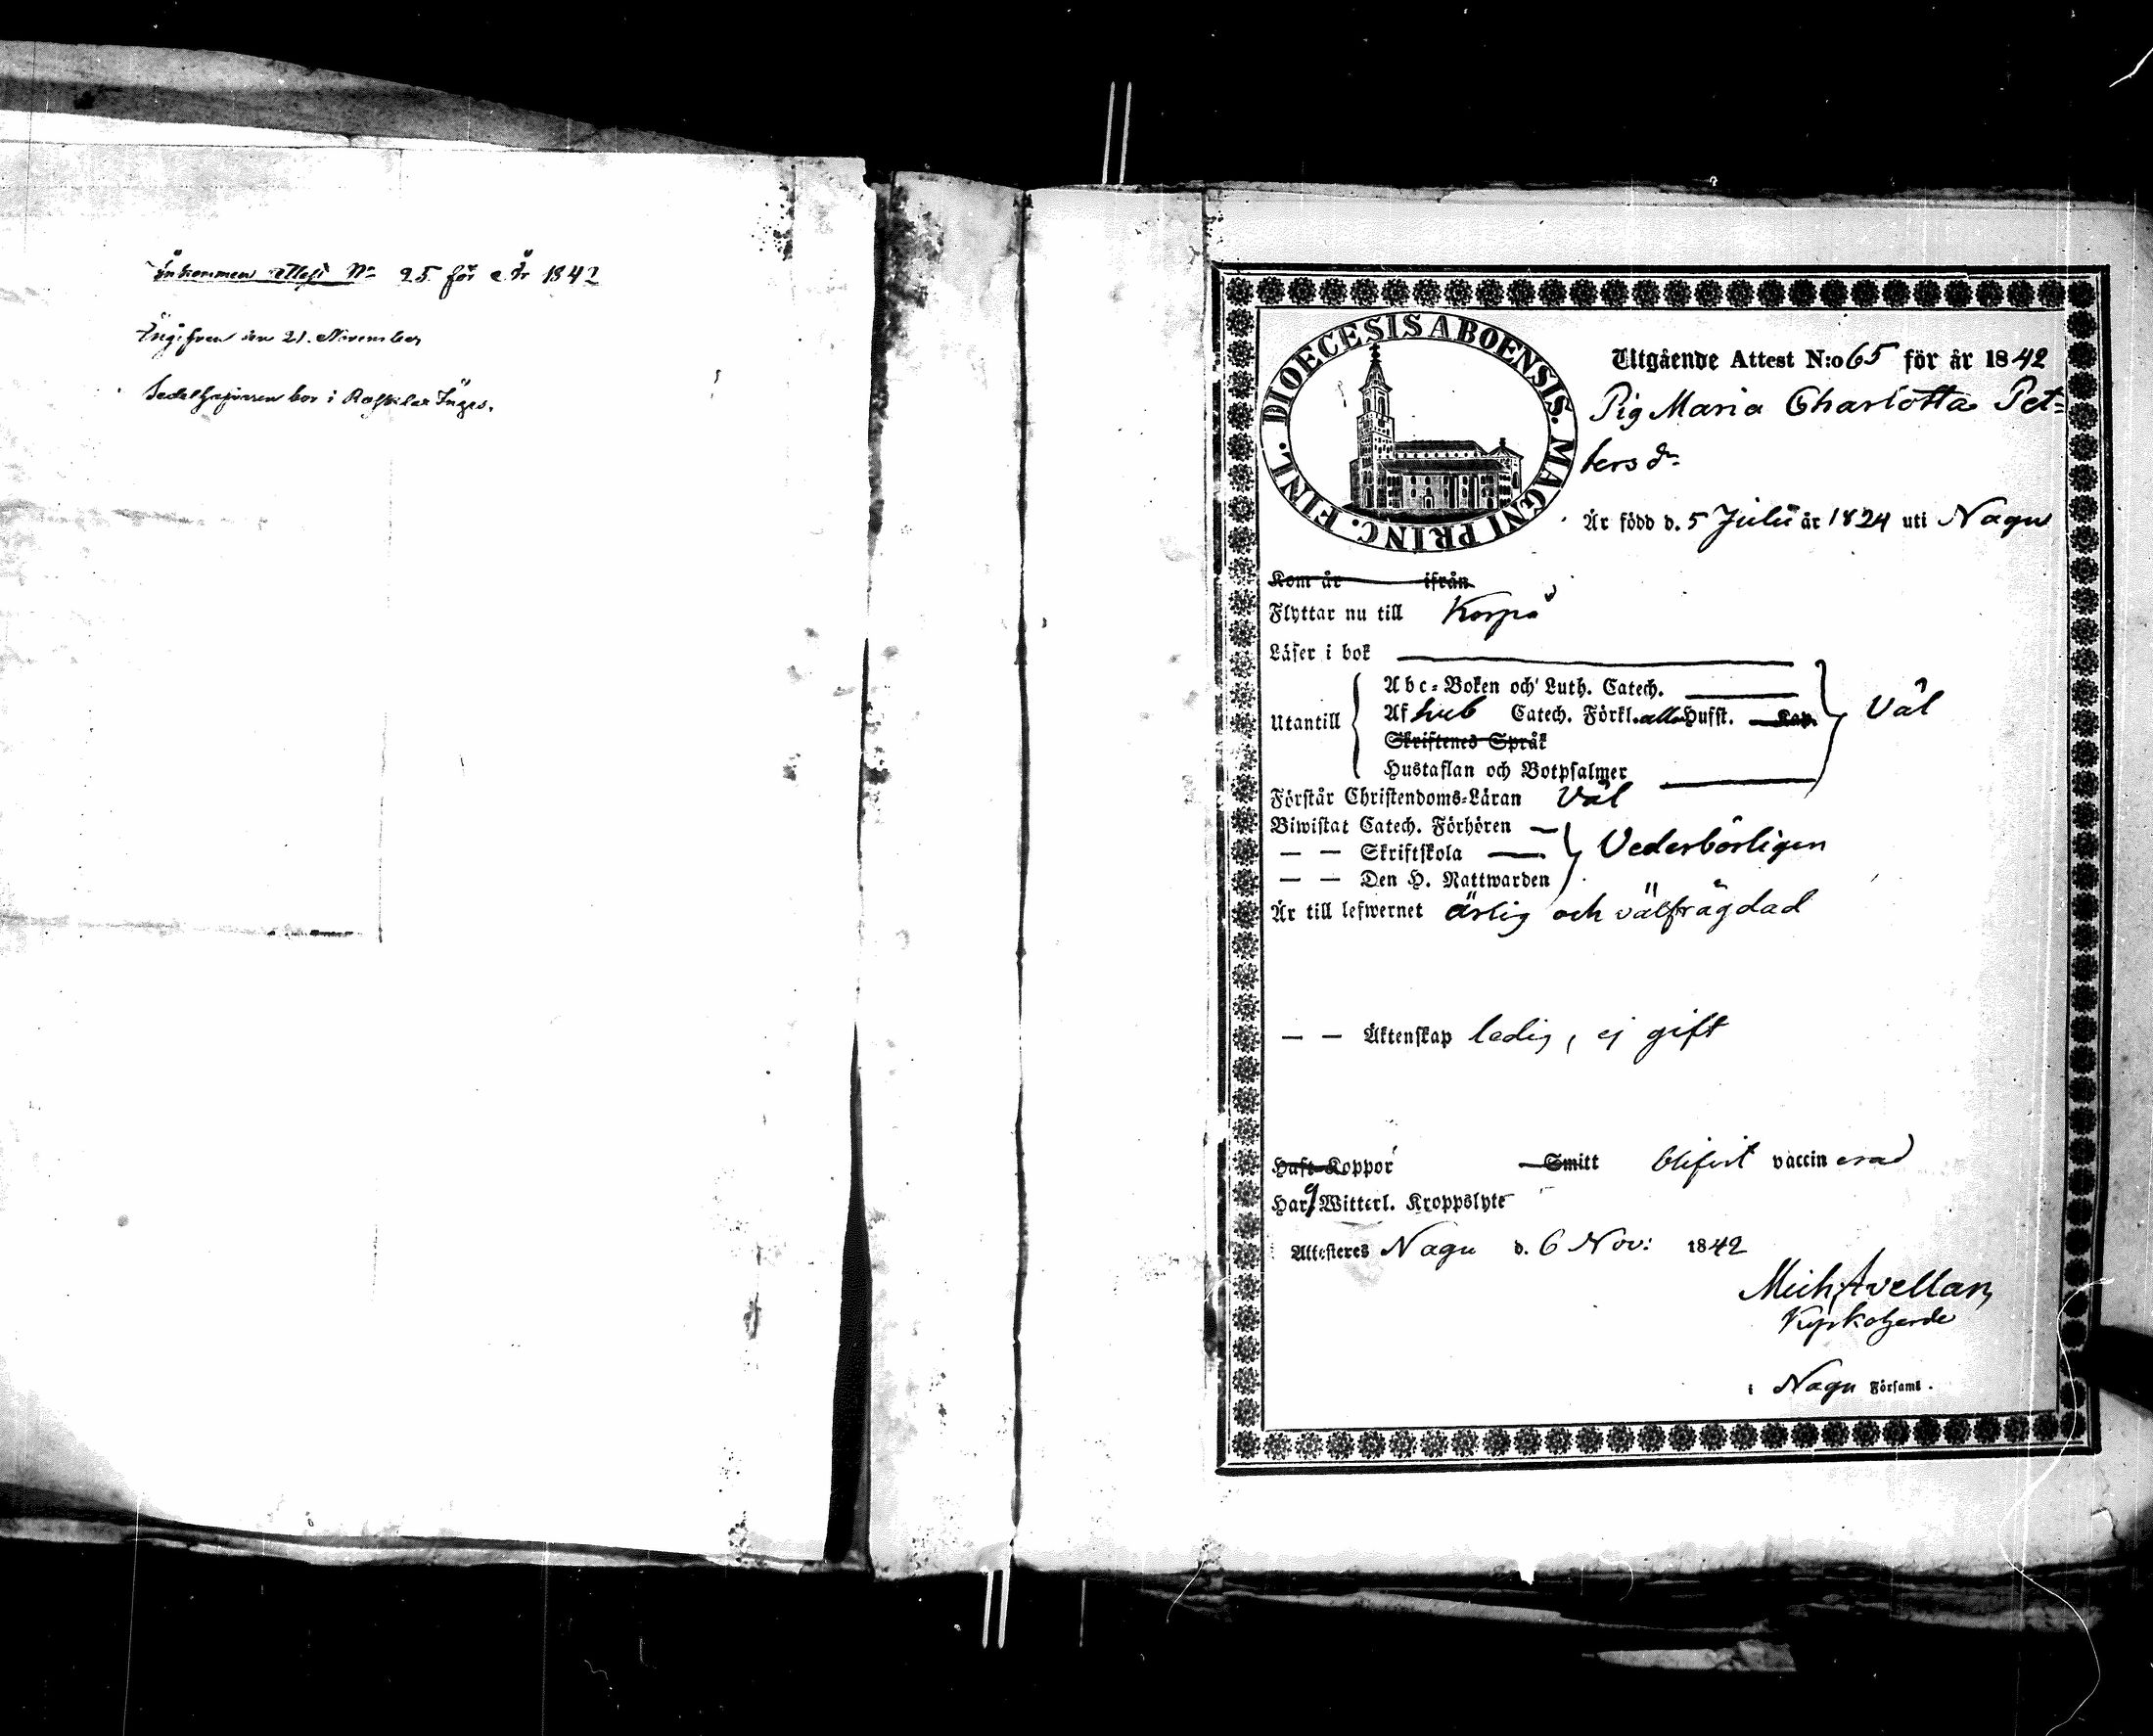 Inkommen Attest No 25 för År 1842
Ingifven den 21. November
Sedelhafvaren bor i
DIOECESIS ABOENSIS. MAGNI PRINC. FINL.
Utgående Attest N:o 65 för år 1842
Pig Maria Charlotta Pet=
tersdr
Är född d. 5 Julii år 1824 uti Nagu
Kom år ifrån
Flyttar nu till Korpo
Läser i bok
Abc=Boken och Luth. Catech.
Utantill Af Sveb Catech. Förkl. alla Hufst. Kap. Väl
Skriftenes Språk
Hustaflan och Botpsalmer
Förstår Christendoms=Läran Väl
Biwistat Catech. Förhören
— — Skriftskola Vederbörligen
— — Den H. Nattwarden
Är till lefwernet ärlig och välfrägdad
— — Äktenskap ledig, ej gift
Haft Koppor Smitt blifvit vaccinerad
Har ej Witterl. Kroppslyte
Attesteres Nagu d. 6 Nov: 1842
Mich. Avellan
Kyrkoherde
i Nagu Församl.